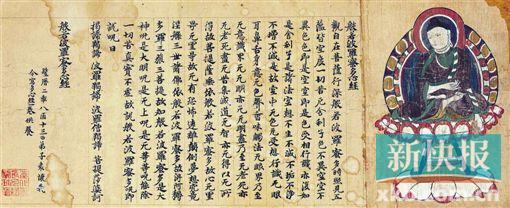 般若波羅蜜多心經
觀自在菩薩行深般若波羅蜜多時照見五
蘊皆空度一切苦厄舍利子色不異空空不
異色色即是空空即是色受想行識亦復如
是舍利子是諸法空相不生不滅不垢不淨
不增不減是故空中无色无受想行識无眼
耳鼻舌身意无色聲香味觸法无眼界乃至
无意識界无无明亦无无明盡乃至无老死亦
无老死盡无苦集滅道无智亦无得以无所
得故菩提薩埵依般若波羅蜜多故心无罣
㝵无罣㝵故无有恐怖遠離顛倒夢想究竟
涅槃三世諸佛依般若波羅蜜多故得阿耨
多羅三藐三菩提故知般若波羅蜜多是大
神呪是大明呪是无上呪是无等等呪能除
一切苦真實不虛故說般若波羅蜜多呪即
說呪曰
揭諦揭諦 波羅揭諦 波羅僧揭諦 菩提薩婆訶
般若波羅蜜多心經
聖曆二年八月十三日弟子
今寫多心經一卷供養
新快报